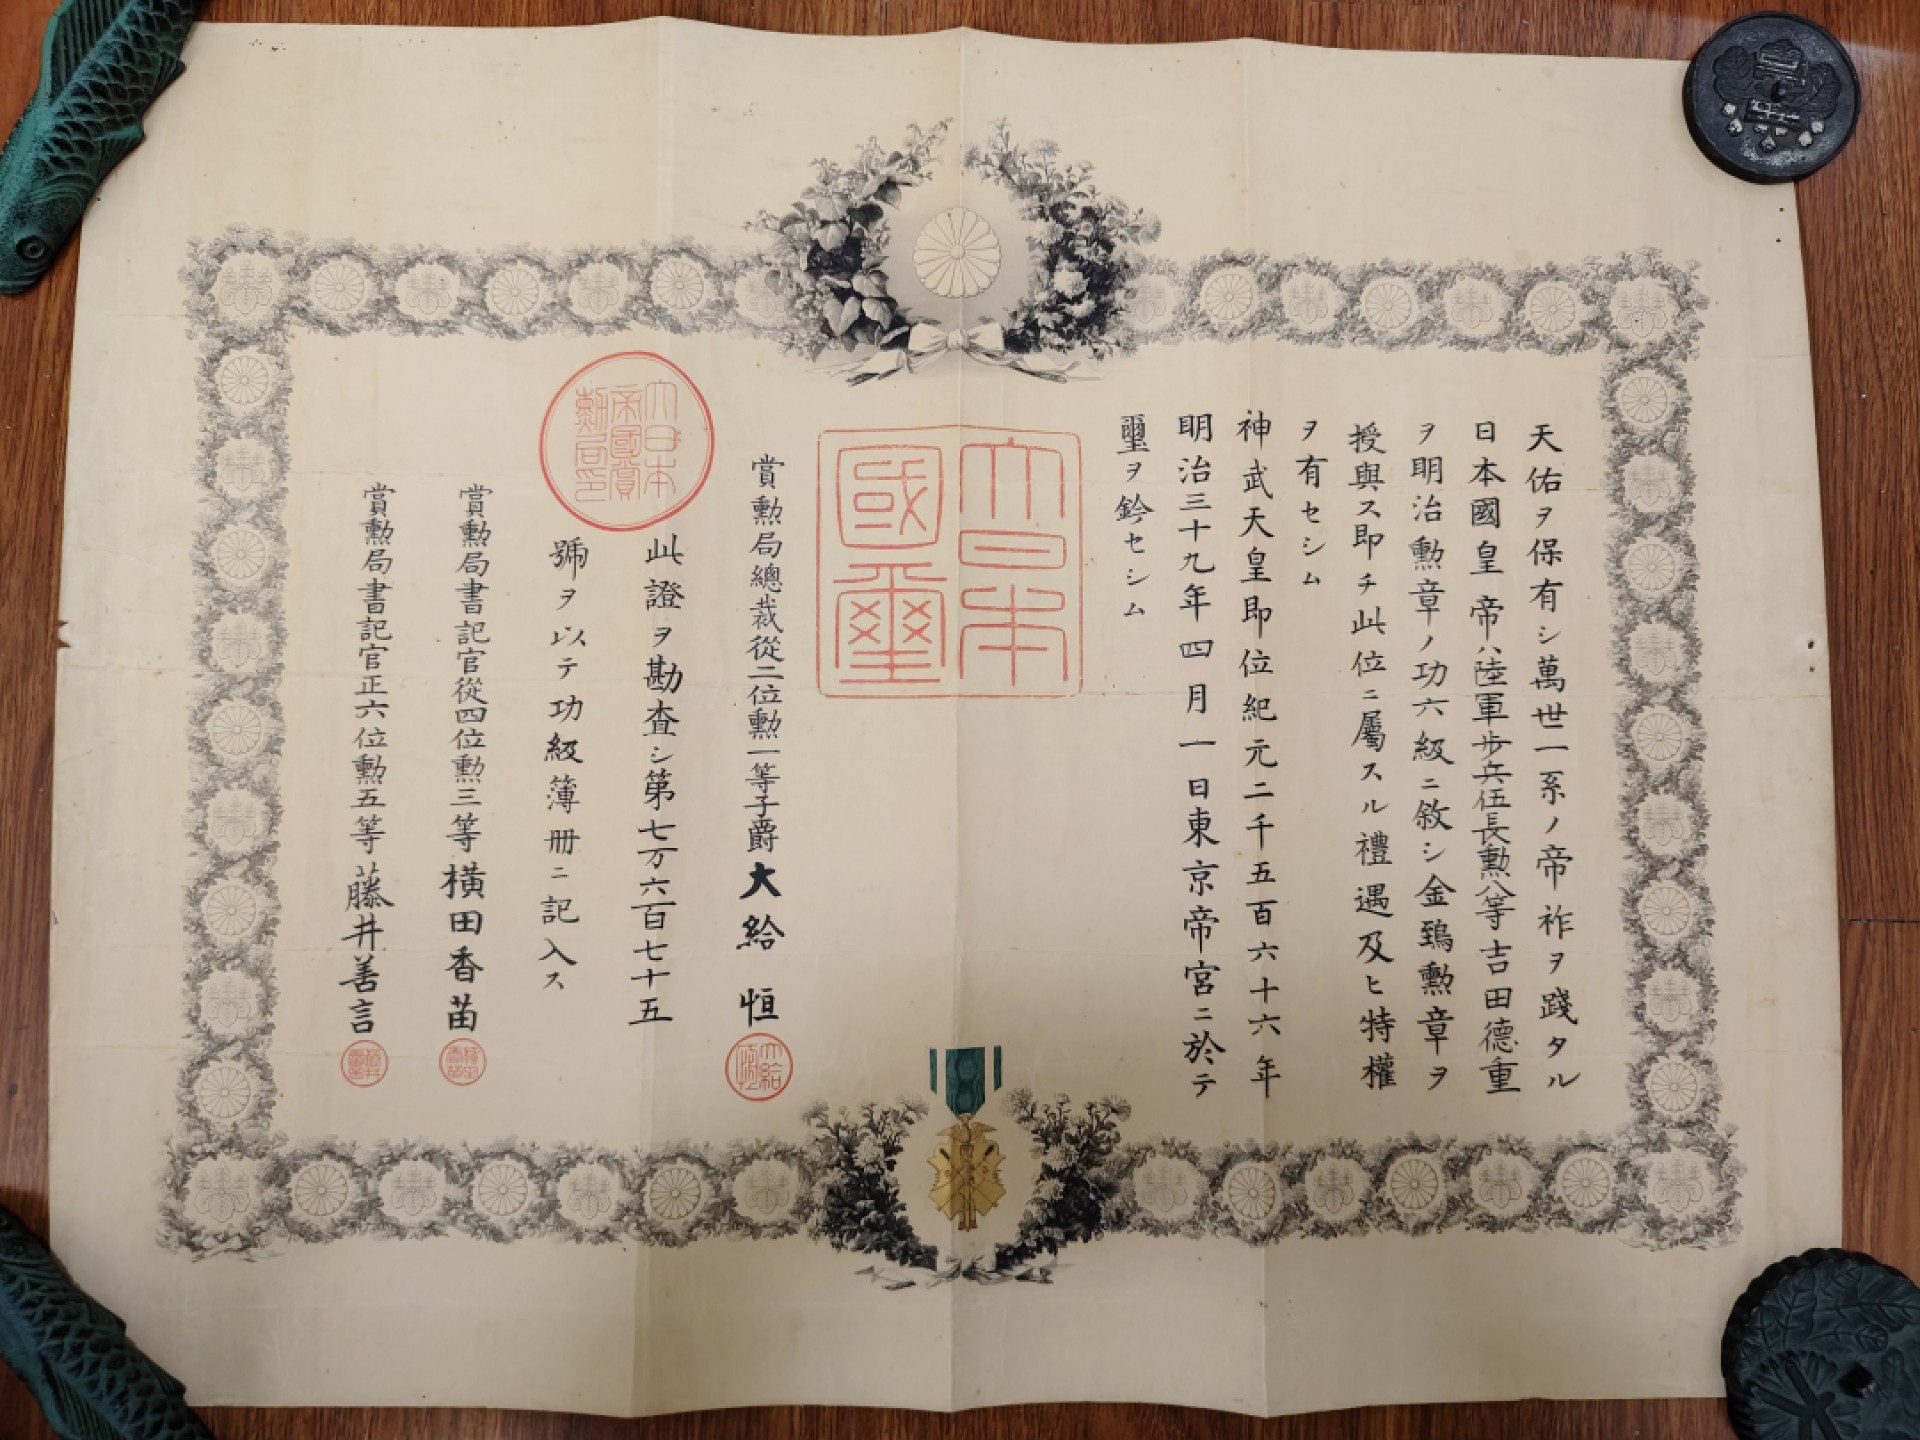 天佑ヲ保有シ萬世一系ノ帝祚ヲ踐タル
日本國皇帝ハ陸軍歩兵伍長勲八等吉田德重
ヲ明治勲章ノ功六級ニ敘シ金鵄勲章ヲ
授與ス即チ此位ニ屬スル禮遇及ヒ特權
ヲ有セシム
神武天皇即位紀元二千五百六十六年
明治三十九年四月一日東京帝宮ニ於テ
璽ヲ鈐セシム
大日本
國璽
賞勲局總裁從二位勲一等子爵大給恒
大給恒
大日本
帝國賞
勲局印
此證ヲ勘査シ第七万六百七十五
號ヲ以テ功級簿册ニ記入ス
賞勲局書記官從四位勲三等橫田香苗
賞勲局書記官正六位勲五等藤井善言